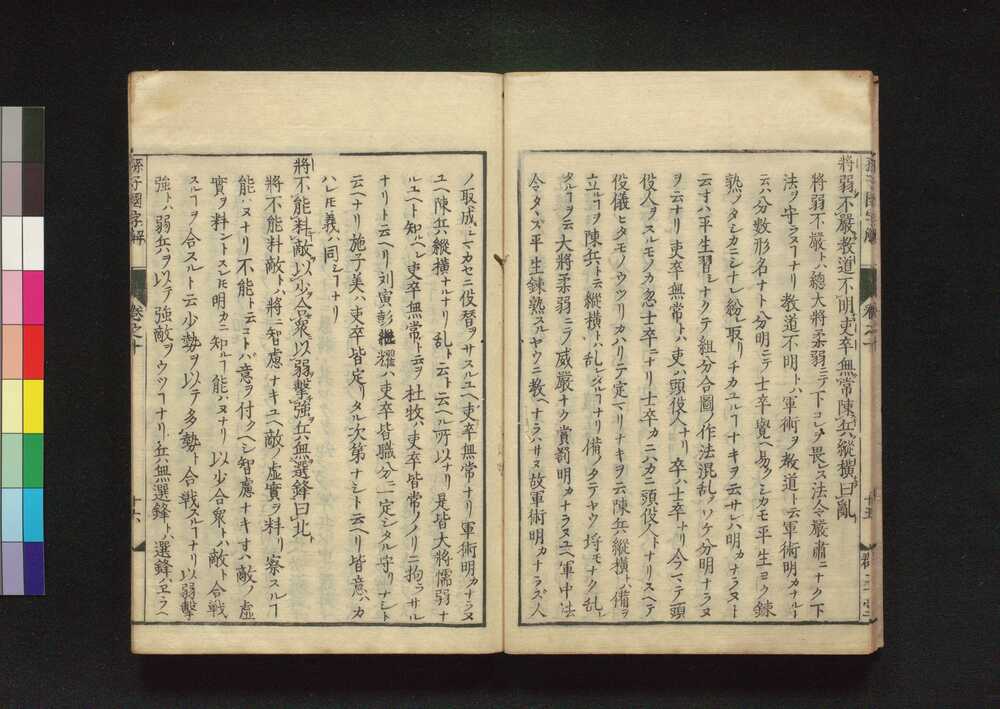 將弱不嚴教道不明吏卒無常陳兵縱横曰亂
將弱不嚴ト ハ總大將柔弱ニテ下コレヲ畏レス法令嚴肅ニナク下
法ヲ守ラヌヿナリ教道不明トハ軍術ヲ教道ト云軍術明カナルト
云ハ分數形名ナト分明ニテ士卒覺ヘ易クシカモ平生ヨク鍊
熟ノタシカニシナレ紛レ取リチカユルヿナキヲ云サレハ明カナラヌト
云ヿハ平生習シナクテ組分合圖ノ作法混乱ノソケ分明ナラヌ
ヲ云ナリ吏卒無常トハ吏ハ頭役人ナリ卒ハ士卒ナリ今マテ頭
役人ヲスルモノカ忽士卒ニナリ士卒カニハカニ頭役人トナリスヘテ
役儀ヒタモノウツリカハリテ定マリナキヲ云陳兵縱横トハ備ヲ
立ルヿヲ陳兵ト云縱横トハ乱レシルヿナリ備ノタテヤウ埒モナク乱レ
タルヿヲ云大將柔弱ニノ威嚴ナク賞罰明カナラヌユヘ軍中法
令タヽズ平生鍊熟スルヤウニ教ヘナラハサヌ故軍術明カナラズ人
ノ取成シマカセニ役替ヲサスルユヘ吏卒無常ナリ軍術明カナラヌ
ユヘ陳兵縱横ナルナリ乱ト云ヘル所以ナリ是皆大將懦弱ナ
ルユヘト知ルヘシ吏卒無常ト云ヲ杜牧ハ吏卒皆常ノノリニ拘ラサル
ナリト云ヘリ刘寅彭繼耀ハ吏卒皆職分ニ一定シタル守リナシト
云ヘナリ施子美ハ吏卒皆定リタル次第ナシト云ヘリ皆意ハカ
ハレ𪜈義ハ同シヿナリ
將不能料敵以少合衆以弱擊強兵無選鋒曰北
將不能料敵トハ將ノ智慮ナキユヘ敵ノ虚實ヲ料リ察スルヿ
能ハヌナリ不能ト云コトバ意ヲ付クヘシ智慮ナキ寸ハ敵ノ虚
實ヲ料ントスレ𪜈明カニ知ルヿ能ハヌナリ以少合衆トハ敵ト合戰
スルヿヲ合スルト云少勢ヲ以テ多勢ト合戰スルヿナリ以弱擊
強トハ弱兵ヲ以テ強敵ヲウツヿナリ兵無選鋒トハ選鋒ハヱラヘ
孫子國字解
卷之十
十六
卷之十
十五